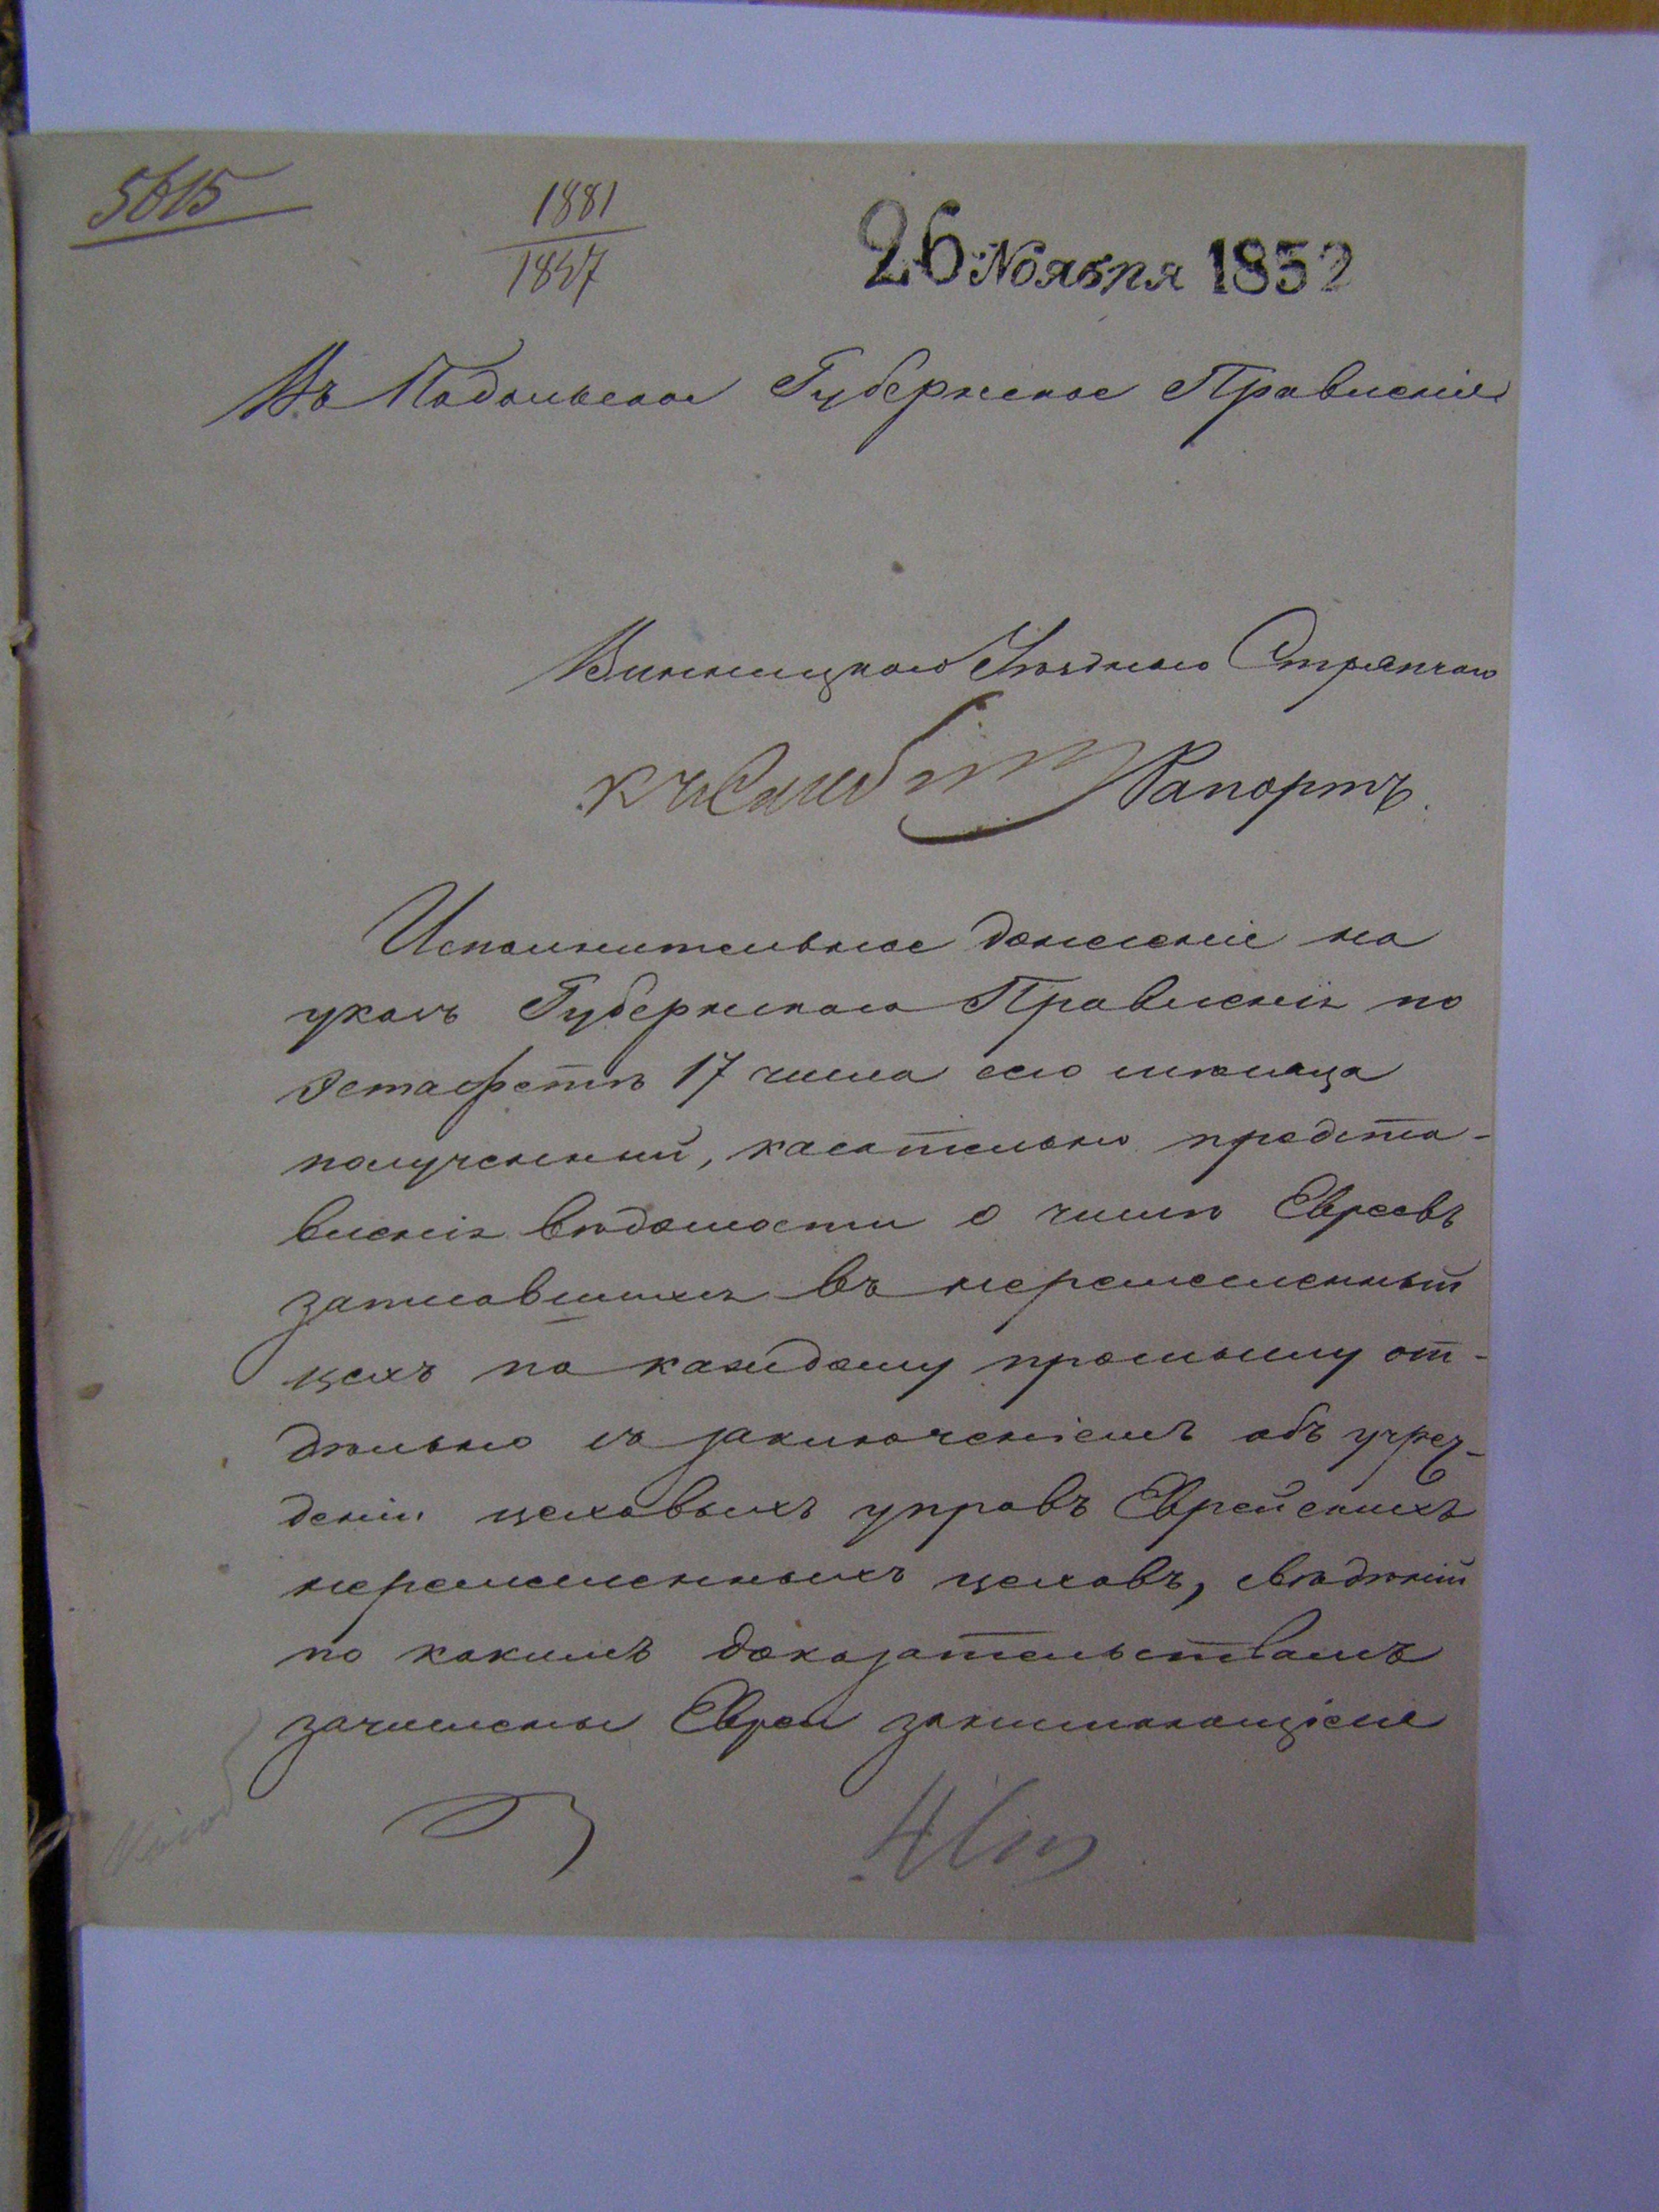 5615
1881
1847
26 Ноября 1852
Въ Подольское Губернское Правленіе
Винницкаго Уѣзднаго Стряпчаго
Рапортъ.
Исполнительное донесеніе на
указъ Губернскаго Правленія по
эстафетѣ 17 числа сего мѣсяца
полученный, касательно предста-
вленія вѣдомости о числѣ Евреевъ
записавшихся въ неремесленный
цехъ по каждому промыслу от-
дѣльно съ заключеніемъ объ учреж-
деніи цеховыхъ управъ Еврейскихъ
неремесленныхъ цеховъ, свѣдѣній
по какимъ доказательствамъ
зачислены Евреи занимающіеся